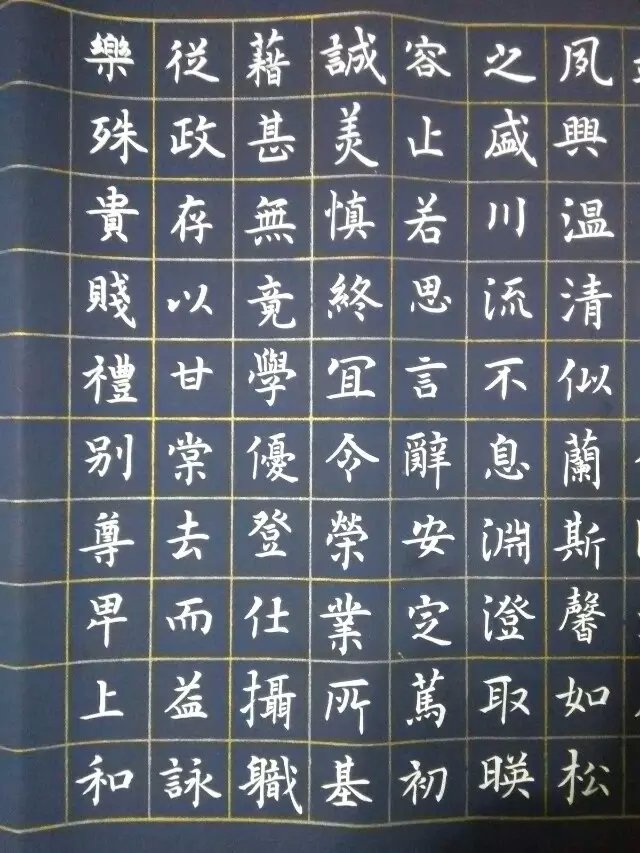 夙興温清似蘭斯馨如松
之盛川流不息淵澄取暎
容止若思言辭安定篤初
誠美慎終宜令榮業所基
藉甚無竟學優登仕攝職
從政存以甘棠去而益詠
樂殊貴賤禮別尊卑上和